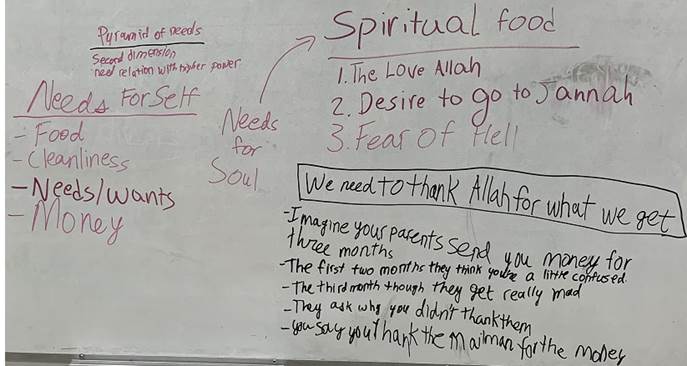 Pyramid of needs
Second dimension
need relation with higher power
Needs For Self
- Food
- Cleanliness
- Needs/wants
- Money
Needs
for
Soul
Spiritual food
1. The Love Allah
2. Desire to go to Jannah
3. Fear Of Hell
We need to thank Allah for what we get
- Imagine your parents send you money for
three months
- The first two months they think you're a little confused.
- The third month though they get really mad
- They ask why you didn't thank them
- you say you thank the mailman for the money